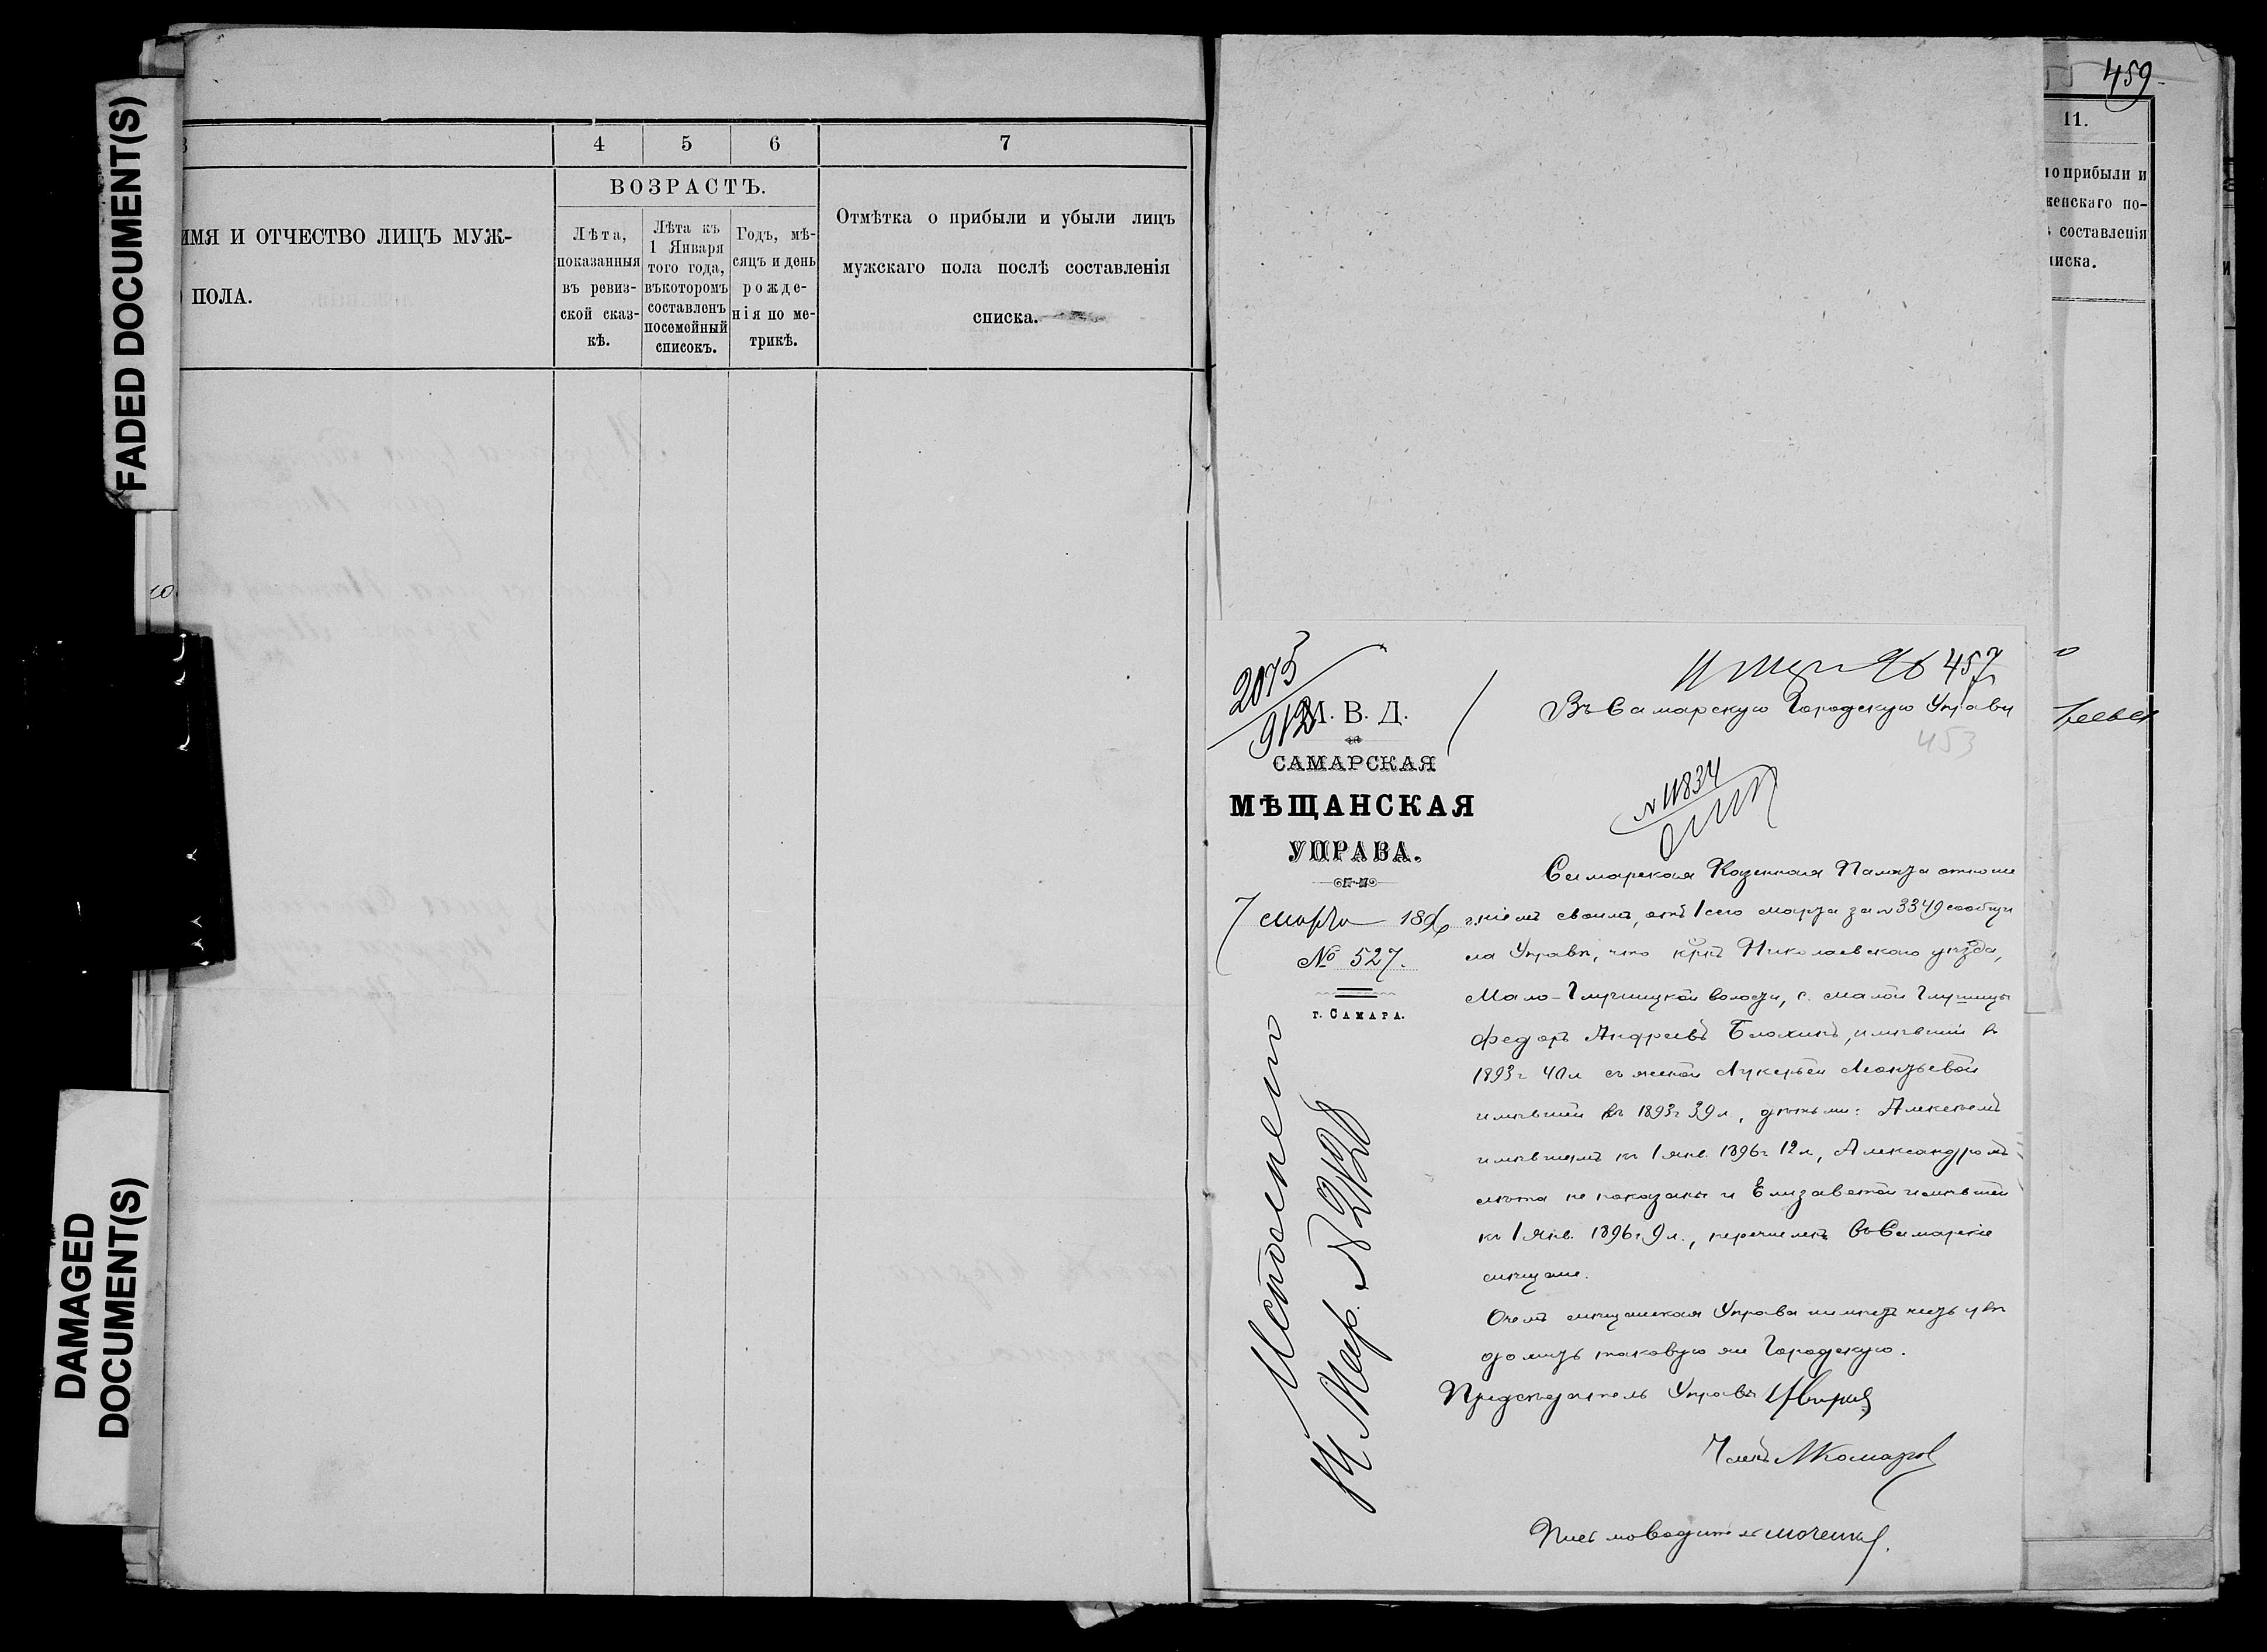 FADED DOCUMENT(S)
DAMAGED
DOCUMENT(S)
4
5
6
7
ВОЗРАСТЪ.
ИМЯ И ОТЧЕСТВО ЛИЦЪ МУЖ-
ПОЛА.
Лѣта,
показанныя
въ ревиз-
ской сказ-
кѣ.
Лѣта къ
1 Января
того года,
въкоторомъ
составленъ
посемейный
списокъ.
Годъ, мѣ-
сяцъ и день
рожде-
нія по ме-
трикѣ.
Отмѣтка о прибыли и убыли лицъ
мужскаго пола послѣ составленія
списка.
459
11.
прибыли и
женскаго по-
составленія
457
2075
912
М. В. Д.
САМАРСКАЯ
МѢЩАНСКАЯ
УПРАВА.
7 марта 1896 г.
№ 527.
г. САМАРА.
Въ Самарскую Городскую Управу
453
№ 11834
Самарская Казенная Палата отноше
ніемъ своимъ, отъ 1 сего марта за № 3349 сообщи
ла Управѣ, что крнъ Николаевскаго уѣзда,
Мало-Глушицкой волости, с. Малой Глушицы
Федоръ Андреевъ Блохинъ, имѣвшій въ
1893 г 40 л съ женой Лукерьей Леонтьевой
имѣвшей въ 1893 г 39 л., дѣтьми: Алексѣемъ
имѣвшемъ къ 1 янв. 1896 г 12 л, Александромъ
лѣта не показаны и Елизаветой имѣвшей
къ 1 янв. 1896 г 9 л., перечисленъ въ Самарскіе
мѣщане.
О чемъ мѣщанская Управа имѣетъ честь увѣ
домить таковую же Городскую.
Предсѣдатель Управы
Членъ Комаров
Письмоводитель
Исполнено
11 Мар. № 2128